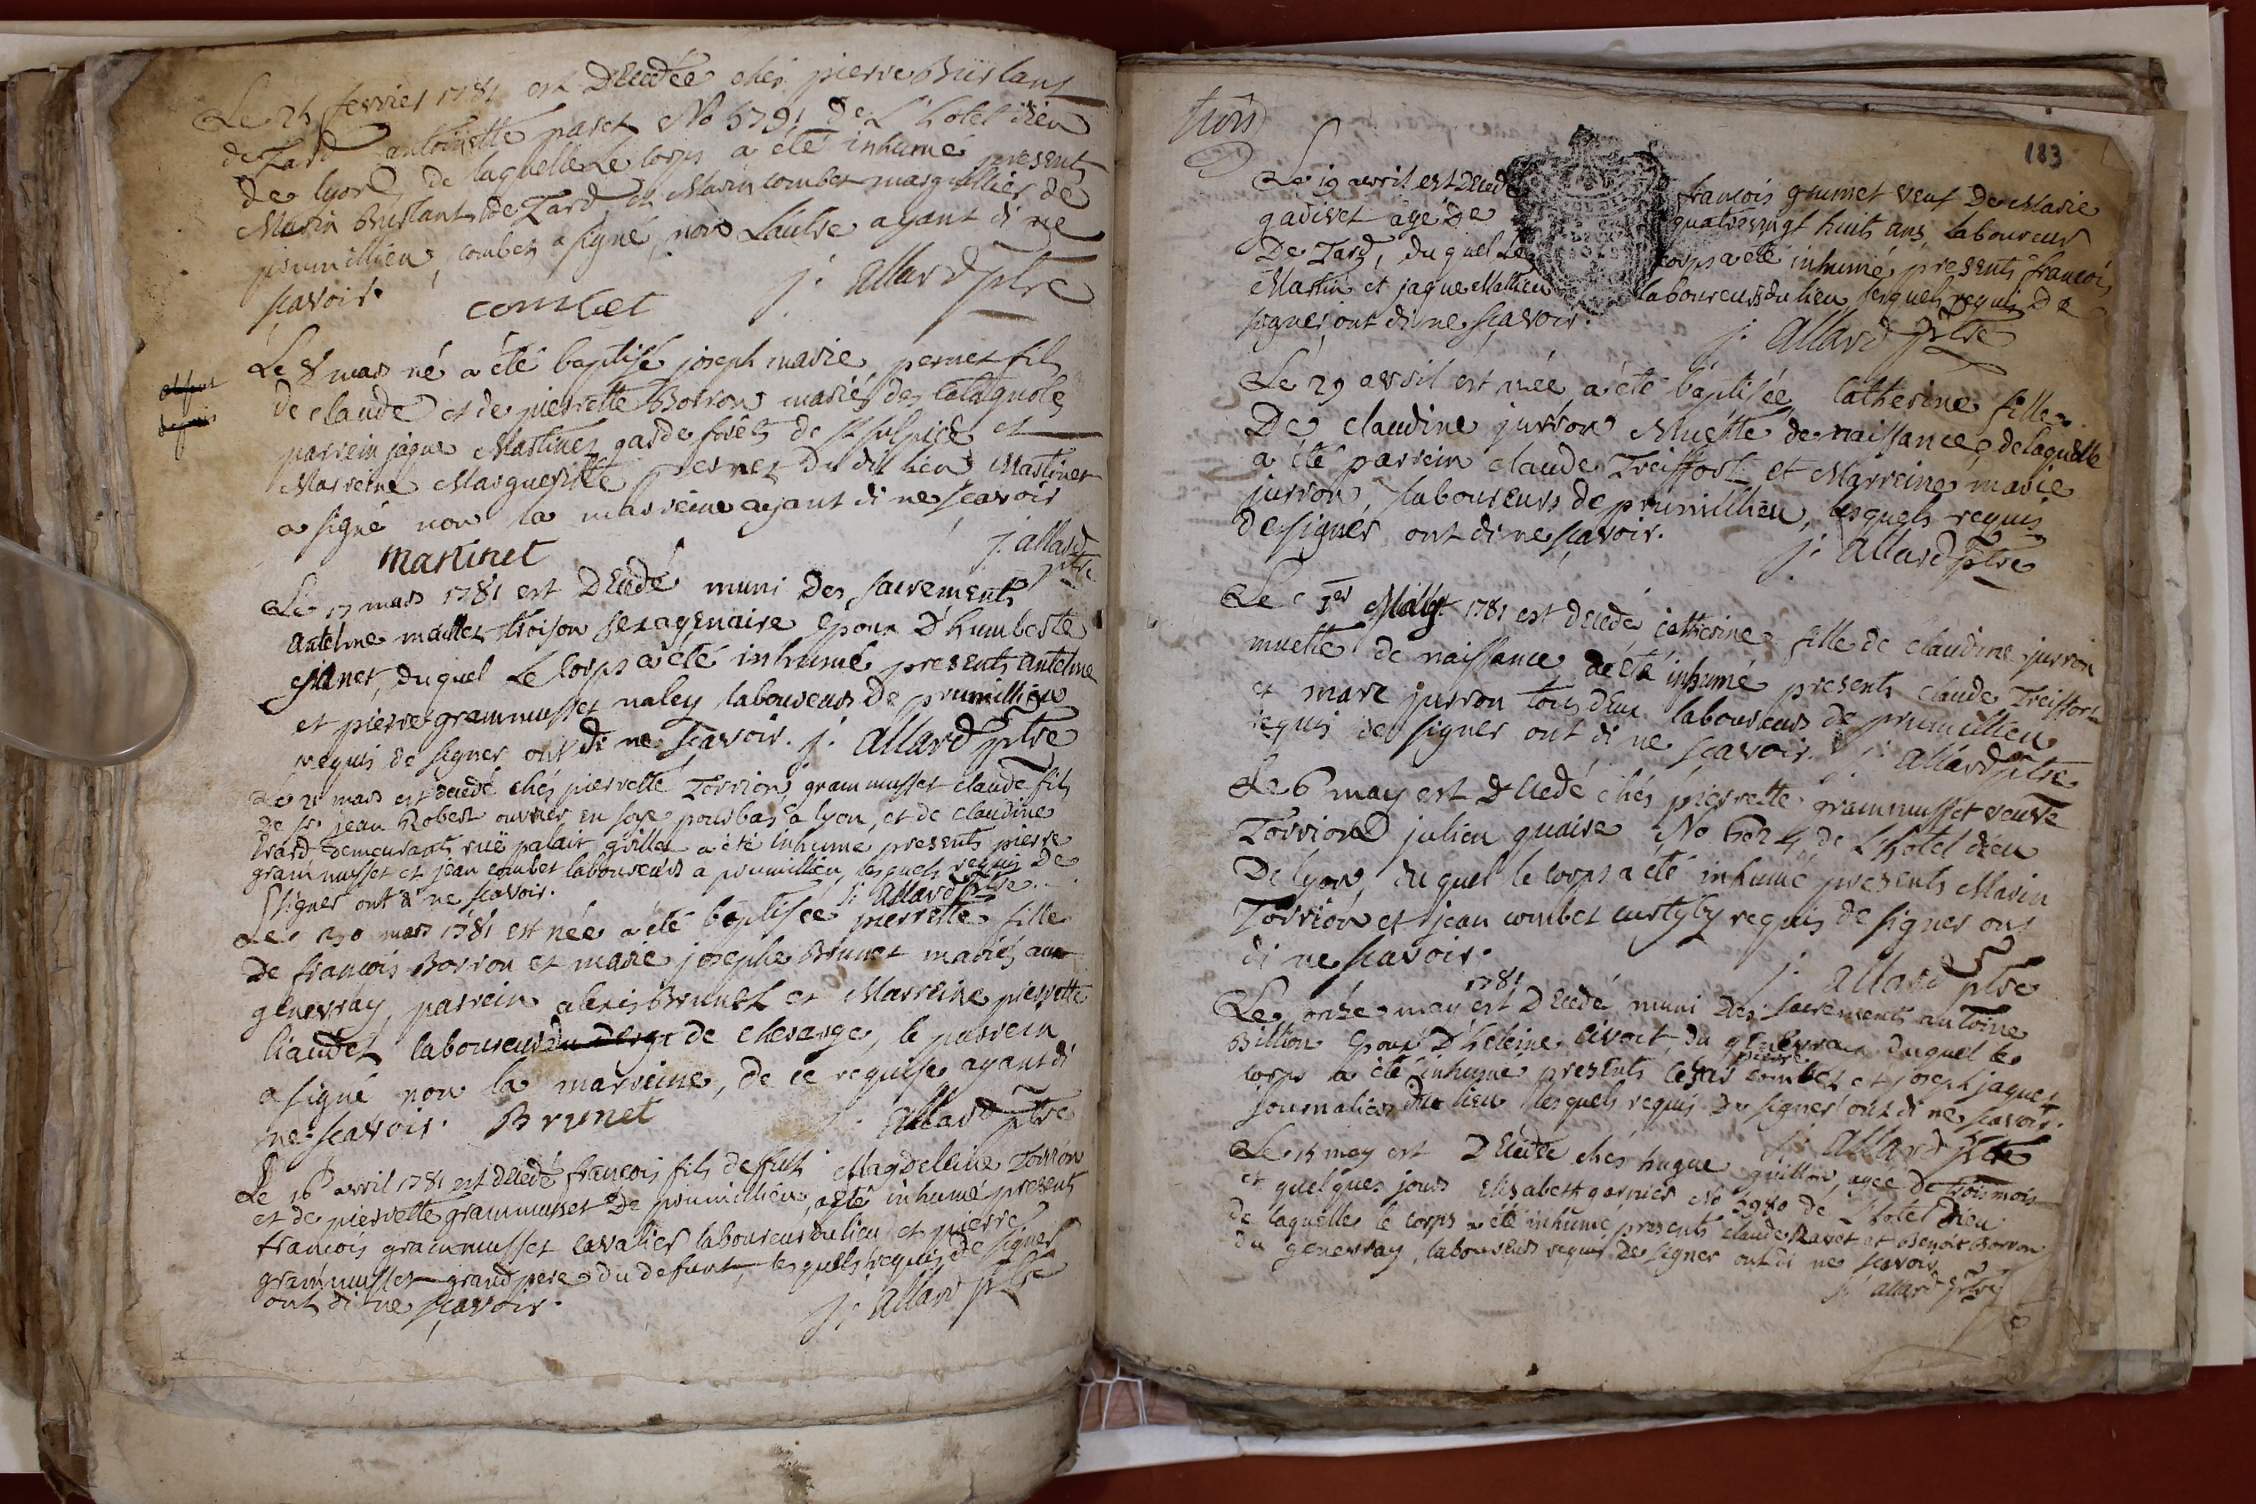 Le 25 fevrier 1781 est Décédée chés pierre Buirlant
de Tard antoinette paret No 5791 de L'hotel dieu
de lyon, de laquelle Le corps a été inhumé presents
Marin Buirlant de Tard et Marin combet marguillier de
prumillieu, combet a signé, non L'autre ayant di ne
scavoir. combet j. allard ptre
Le 8 mars né a été baptisé joseph marie pernet fils
de claude et de pierrette Borron mariés des Catagnoles
parrein jaque Martinet garde forêts de st sulpice et
Marreine Margueritte pernet du dit lieu Martinet
a signé non la marreine ayant di ne scavoir
martinet j. allard
ptre
Le 17 mars 1781 est Décédé muni Des sacrements
antelme maillet troison sexagenaire Epoux D'humberte
janet, duquel Le Corps a été inhumé presents antelme
et pierre grammusset naley laboureurs de prumillieu
requis de signer ont di ne scavoir. j. allard ptre
Le 21 mars est décédé chés pierrette Torrion grammusset claude fils
de sr jean Robert ouvrier en soye pour bas à lyon, et de claudine
Erard demeurants ruë palais grillet a été inhumé presents pierre
grammusset et jean combet laboureurs a prumillieu, lesquels requis de
signer ont di ne scavoir. j. allard ptre
Le 30 mars 1781 est née a été baptisée pierrette fille
De francois Borron et marie josephe Brunet mariés au
genevray, parrein alexis Brunet et Marreine pierrette
liaudet laboureurs de cheserge, le parrein
a signé non la marreine, de ce requise ayant di
ne scavoir. Brunet j. allard ptre
Le 16 avril 1781 est décédé francois fils deffunt Magdeleine Torrion
et de pierrette grammusset De prumillieu, a été inhumé presents
francois grammusset cavalier laboureur du lieu et pierre
grammusset grand pere du defunt, lesquels requis de signer
ont di ne scavoir. j. allard ptre
trois
183
Le 19 avril est Décédé francois grumet veuf De Marie
gadivet âgé De quatrevingt huit ans, laboureur
De Tard, duquel Le corps a été inhumé presents francois
Martin et jaque Mathieu laboureurs du lieu lesquels requis De
signer ont di ne scavoir. j. allard ptre
Le 29 avril est née, a été baptisée Catherine fille
De claudine jurron Muëtte de naissance, de laquelle
a été parrein claude Treiffort et Marreine marie
jurron, laboureurs de prumillieu, lesquels requis
de signer ont di ne scavoir. j. allard ptre
Le 1er May 1781 est décédé catherine fille de claudine jurron
muette de naissance a été inhumé presents claude Treiffort
et marc jurron tous deux laboureurs de prumillieu
requis de signer ont di ne scavoir. j. allard ptre
Le 6 may est Décédé chés pierrette grammusset veuve
Torrion julien quaire No 6024 de L'hotel dieu
De lyon, duquel le corps a été inhumé presents Marin
Torrion et jean combet curtyly requis de signer ont
di ne scavoir. j. allard ptre
1781
Le onze may est Décédé muni Des sacrements antoine
Billion Epoux D'heleine Civoct du genevray duquel le
pierre
corps a été inhumé presents combet et joseph jaquet
journaliers du lieu lesquels requis de signer ont di ne scavoir.
j. allard ptre
Le 15 may est Décédée chés hugue guillon, agée De trois mois
et quelques jours Elizabeth garnier No 5980 de L'hotel Dieu
de laquelle le corps a été inhumé, presents claude Ravet et Benoit Borron
du genevray, laboureurs requis De signer ont di ne scavoir
j. allard ptre